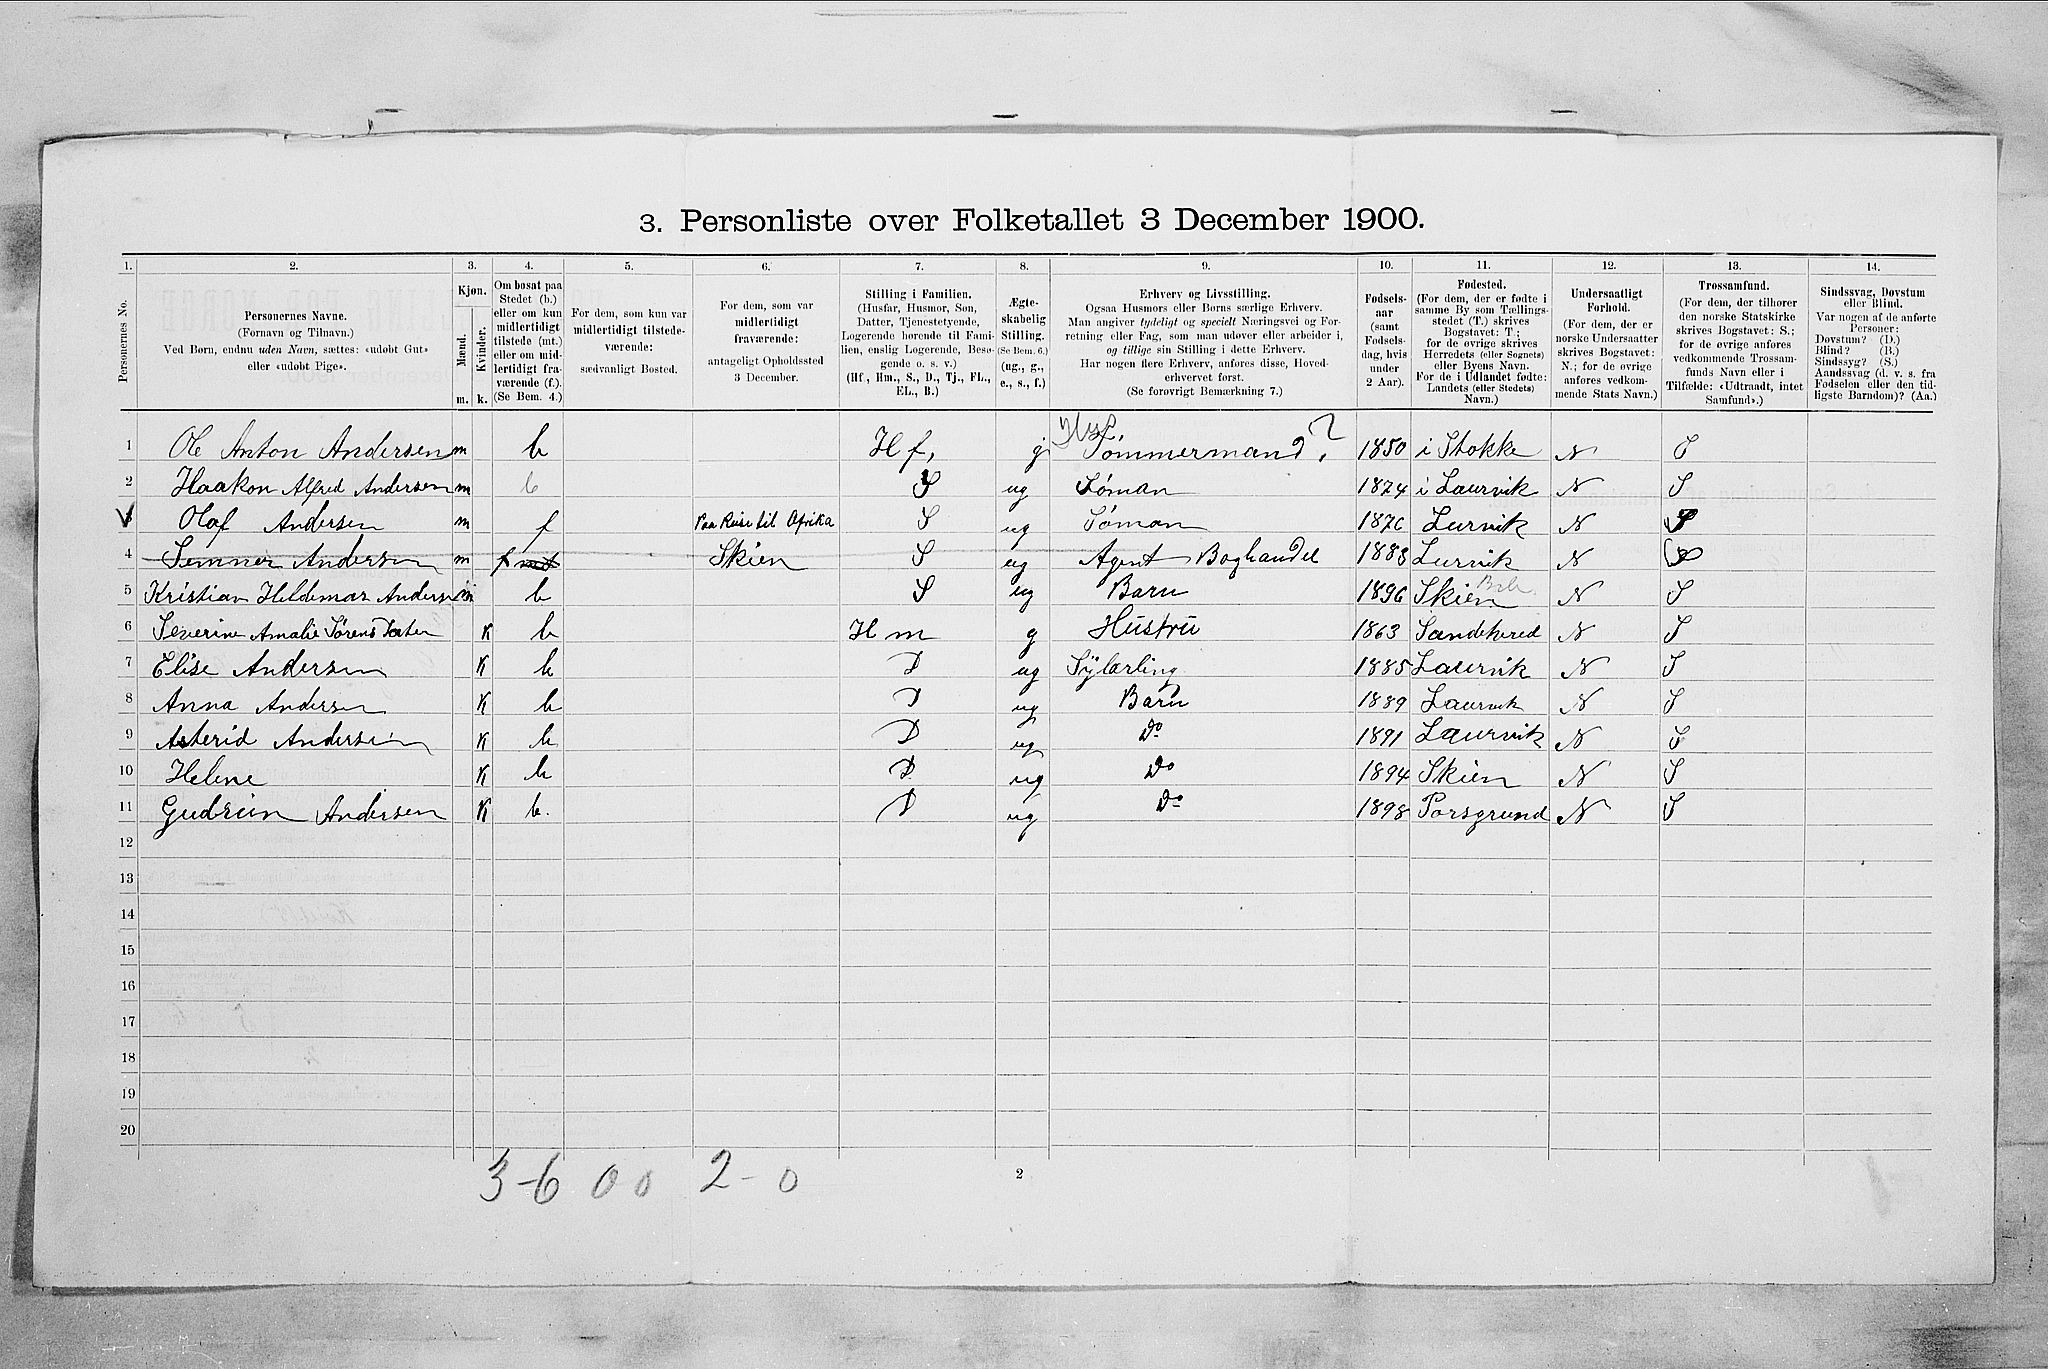 3. Personliste over Folketallet 3 December 1900.
1. 2. 3. 4. 5. 6. 7. 8. 9. 10. 11. 12. 13. 14.
Personernes No.
Personernes Navne.
(Fornavn og Tilnavn.)
Ved Børn, endnu uden Navn, sættes: «udøbt Gut»
eller «udøbt Pige».
Kjøn.
Mænd. Kvinder.
m. k.
Om bosat paa
Stedet (b.)
eller om kun
midlertidigt
tilstede (mt.)
eller om mid-
lertidigt fra-
værende (f.).
(Se Bem. 4.)
For dem, som kun var
midlertidigt tilstede-
værende:
sædvanligt Bosted.
For dem, som var
midlertidigt
fraværende:
antageligt Opholdssted
3 December.
Stilling i Familien.
(Husfar, Husmor, Søn,
Datter, Tjenestetyende,
Logerende hørende til Fami-
lien, enslig Logerende, Besø-
gende o. s. v.)
(Hf., Hm., S., D., Tj., FL.,
EL., B.)
Ægte-
skabelig
Stilling.
(Se Bem. 6.)
(ug., g.,
e., s., f.)
Erhverv og Livsstilling.
Ogsaa Husmors eller Børns særlige Erhverv.
Man angiver tydeligt og specielt Næringsvei og For-
retning eller Fag, som man udøver eller arbeider i,
og tillige sin Stilling i dette Erhverv.
Har nogen flere Erhverv, anføres disse, Hoved-
erhvervet først.
(Se forøvrigt Bemærkning 7.)
Fødsels-
aar
(samt
Fødsels-
dag, hvis
under
2 Aar).
Fødested.
(For dem, der er fødte i
samme By som Tællings-
stedet (T.) skrives
Bogstavet: T.;
for de øvrige skrives
Herredets (eller Sognets)
eller Byens Navn.
For de i Udlandet fødte:
Landets (eller Stedets)
Navn.)
Undersaatligt
Forhold.
(For dem, der er
norske Undersaatter
skrives Bogstavet:
N.; for de øvrige
anføres vedkom-
mende Stats Navn.)
Trossamfund.
(For dem, der tilhører
den norske Statskirke
skrives Bogstavet: S.;
for de øvrige anføres
vedkommende Trossam-
funds Navn eller i
Tilfælde: «Udtraadt, intet
Samfund».)
Sindssvag, Døvstum
eller Blind.
Var nogen af de anførte
Personer:
Døvstum? (D.)
Blind? (B.)
Sindssyg? (S.)
Aandssvag (d. v. s. fra
Fødselen eller den tid-
ligste Barndom)? (Aa.)
1 Ole Anton Andersen m b Hf, g Tømmermand, ? 1850 i Stokke N S
2 Haakon Alfred Andersen m b S ug Søman 1874 i Laurvik N S
3 Olaf Andersen m f Paa Reise til Afrika S ug Søman 1876 Lurvik N S
4 Semner Andersen m f mt Skien S ug Agent Boghandel 1883 Lurvik N S
5 Kristian Heldemar Andersen m b S ug Barn 1896 Skien N S
6 Severine Amalie Sørens Dater K b Hm g Hüstrü 1863 Sandehered N S
7 Elise Andersen K b D ug Sÿlærling 1885 Laurvik N S
8 Anna Andersen K b D ug Barn 1889 Laurvik N S
9 Asterid Andersen K b D ug Do 1891 Laurvik N S
10 Helene K b D ug Do 1894 Skien N S
11 Gudrün Andersen K b. D ug Do 1898 Porsgrund N S
12
13
14
15
16
17
18
19
20
3-6 0 0 2-0
2